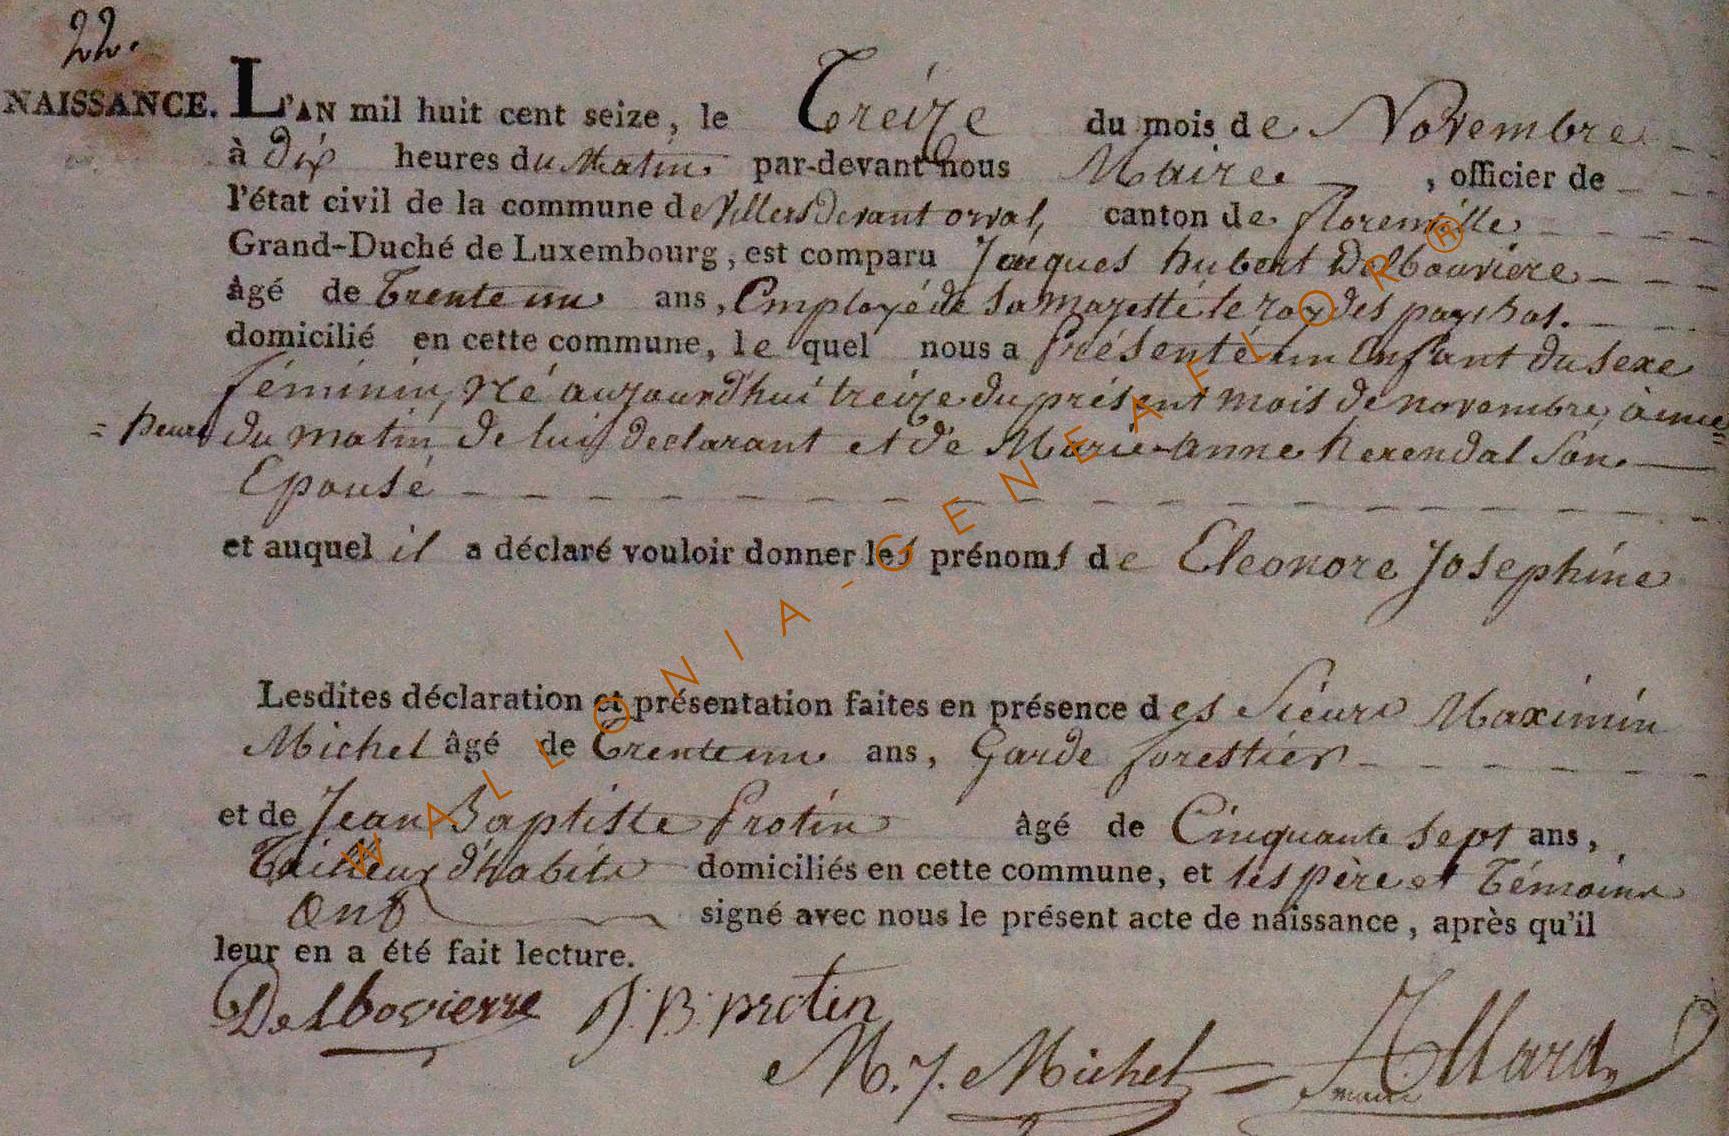 22.
NAISSANCE. L'AN mil huit cent seize, le Treize du mois de Novembre
à dix heures du Matin par-devant nous Maire, officier de
l'état civil de la commune de Villers devant orval, canton de florenville
Grand-Duché de Luxembourg, est comparu Jacques hubert Delbouviere
âgé de Trente un ans, Employé de Sa Majesté le roy des pays bas.
domicilié en cette commune, le quel nous a présenté un Enfant du Sexe
féminin, né aujourd'hui treize du présent mois de novembre, à une
= heure du matin, de lui declarant et de Marie-Anne herendal Son
Epouse
et auquel il a déclaré vouloir donner les prénoms de Eleonore Josephine
Lesdites déclaration et présentation faites en présence des Sieurs Maximin
Michel âgé de Trente un ans, Garde forestier
et de Jean Baptiste Protin âgé de Cinquante Sept ans,
Tailleur d'habits domiciliés en cette commune, et les père et Témoins
Ont signé avec nous le présent acte de naissance, après qu'il
leur en a été fait lecture.
Delbovierre J. B. protin
M. J. Michel Allard
maire
WALLONIA-GENEAFLOR®